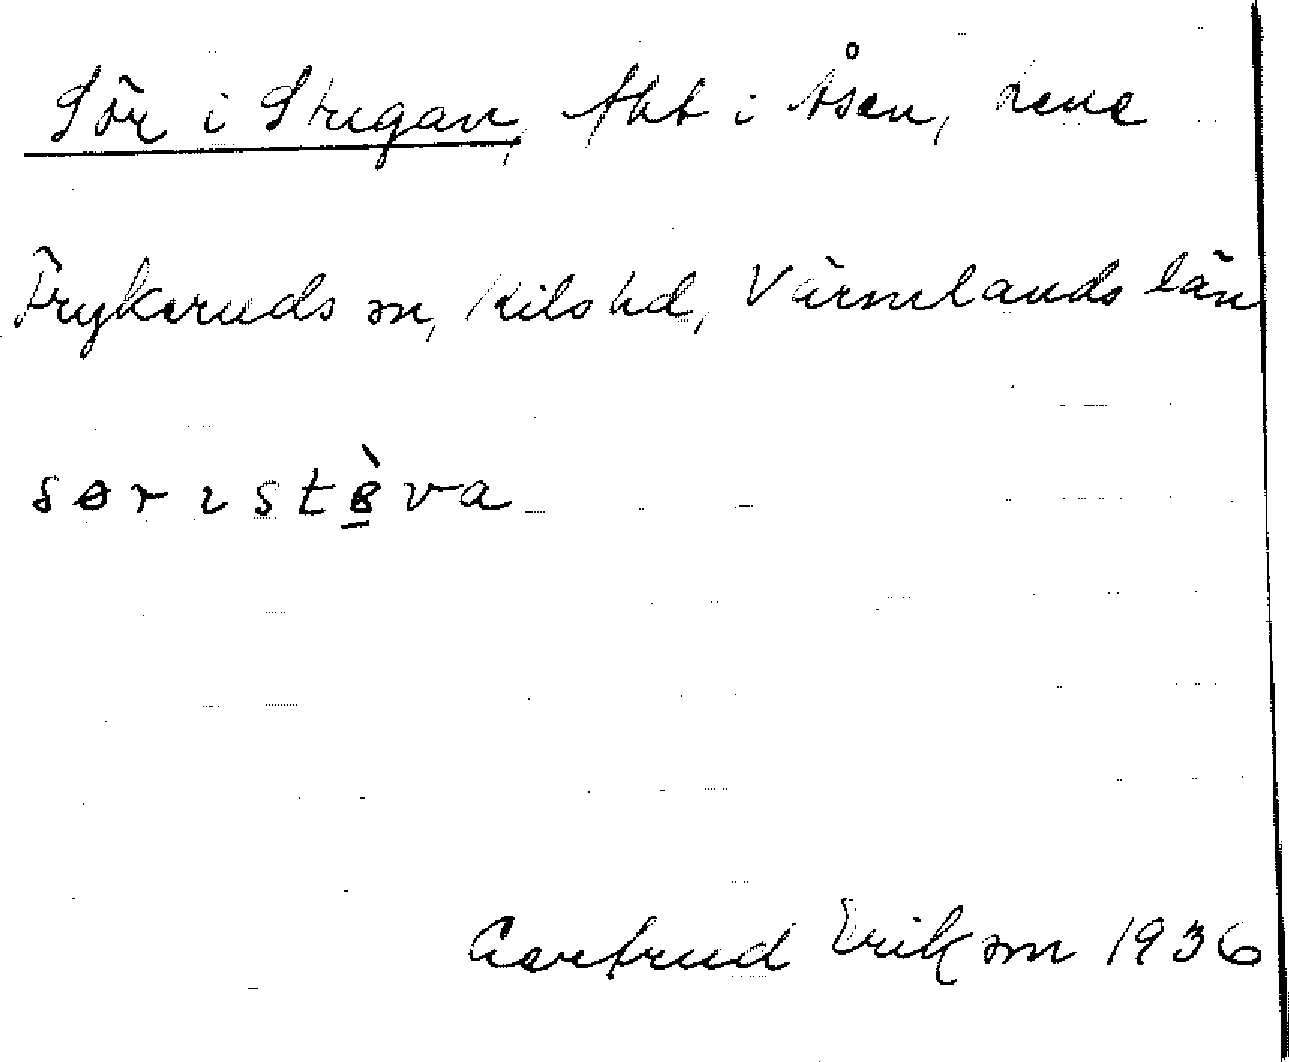 Sör i Stugan, tht i Åsen, Lene
Frykeruds sn, Kils hd, Värmlands län
Gertrud Erikson 1936